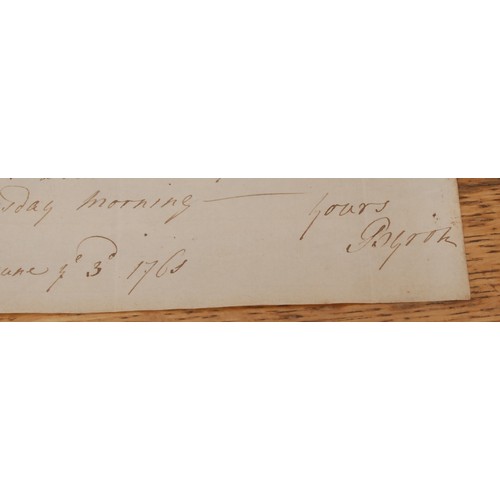 sday morning — yours
Byron
une yᵉ 3ᵈ 1761